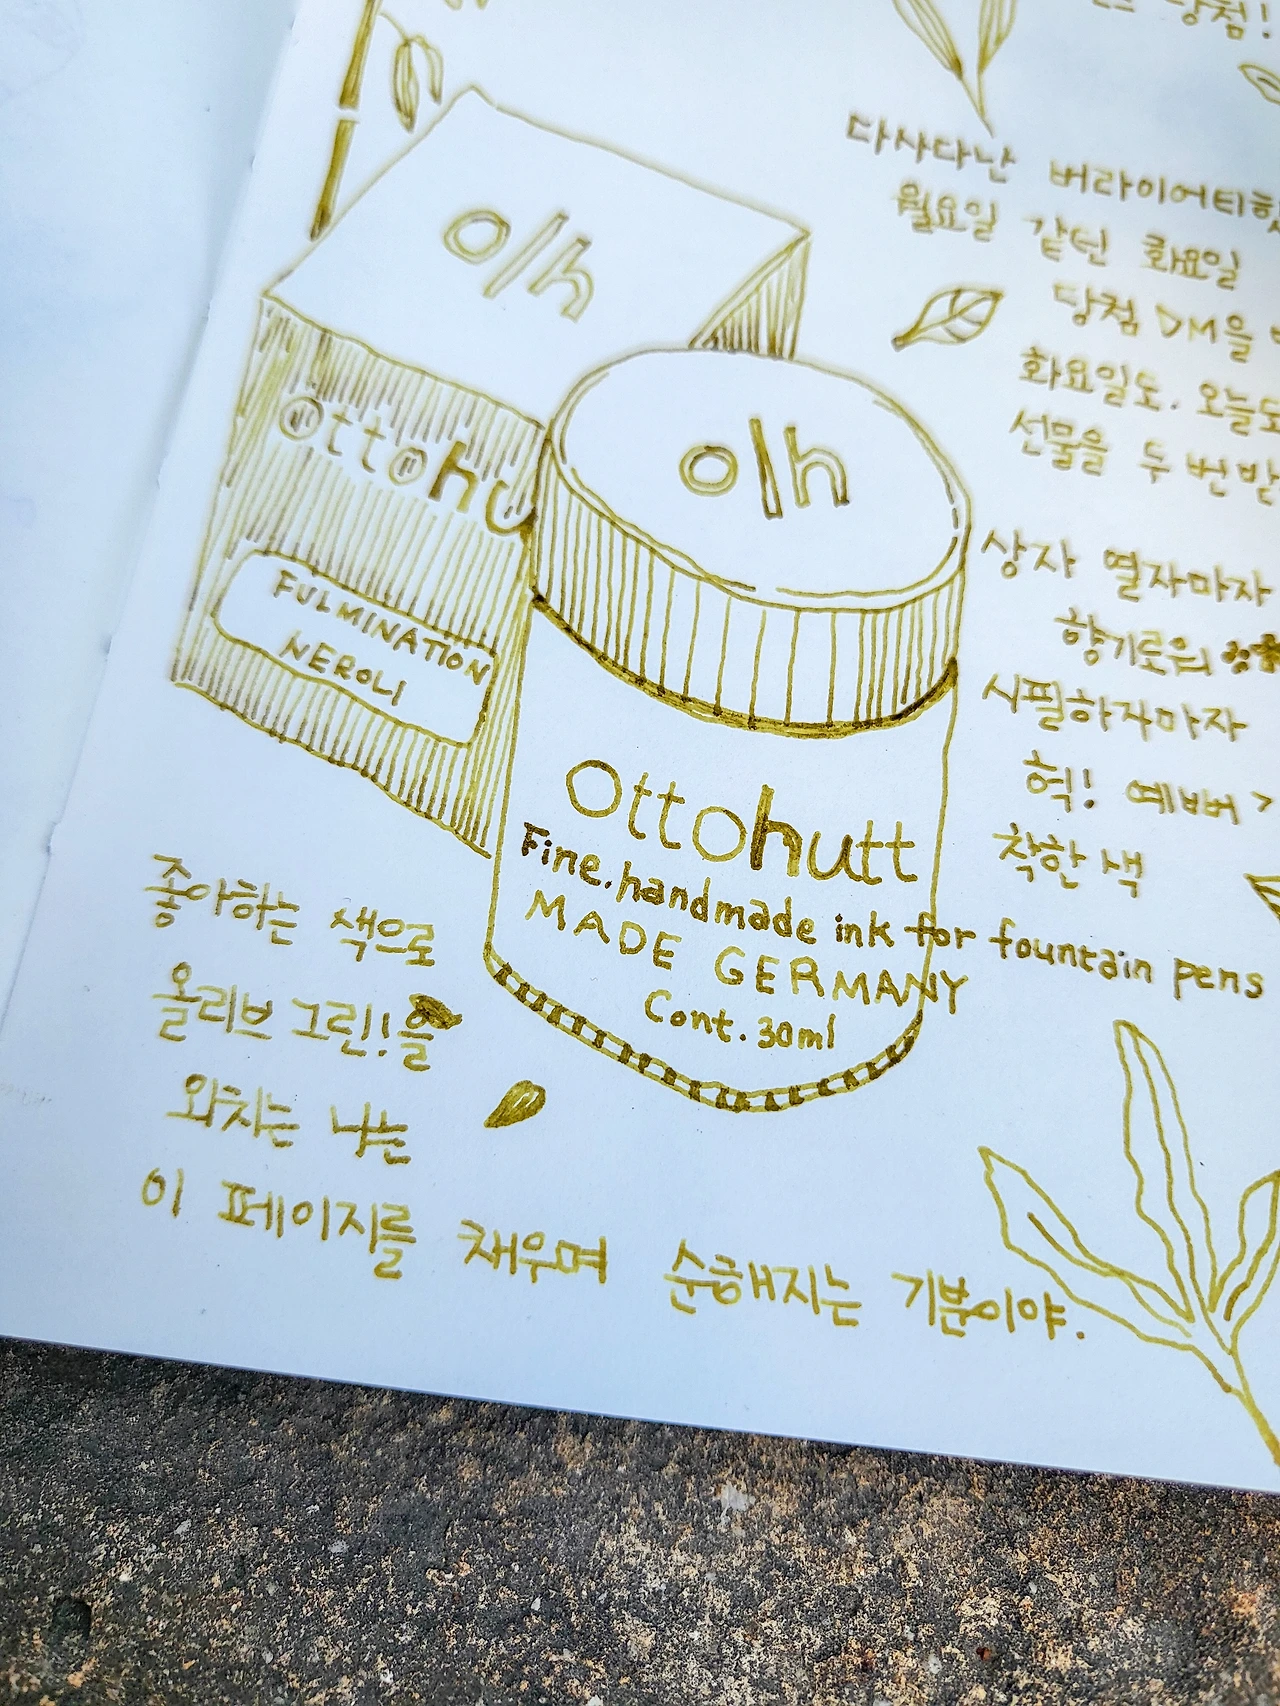 당첨!
다사다난 버라이어티했
월요일 같던 화요일
당첨 DM을
화요일도. 오늘도
선물을 두 번 받
상자 열자마자
향기로워
시필하자마자
헉! 예뻐
착한 색
o/h
ottohu
FULMINATION
NEROLI
o|h
Ottohutt
Fine.handmade ink for fountain pens
MADE GERMANY
Cont.30ml
좋아하는 색으로
올리브 그린!을
외치는 나는
이 페이지를 채우며 순해지는 기분이야.